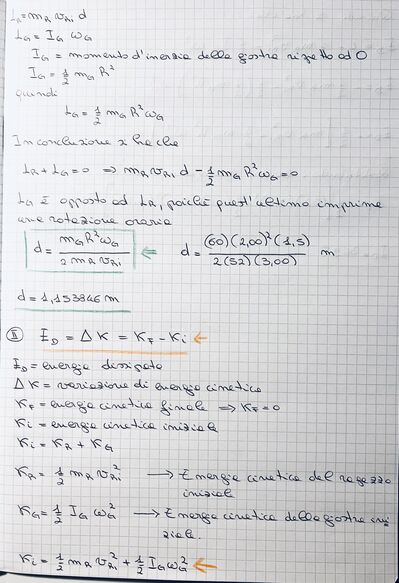 L_R = m_R v_Ri d
L_G = I_G ω_G
I_G = momento d'inerzia della giostra rispetto ad O
I_G = 1/2 m_G R²
quindi
L_G = 1/2 m_G R² ω_G
In conclusione si ha che
L_R + L_G = 0 ⇒ m_R v_Ri d - 1/2 m_G R² ω_G = 0
L_G è opposto ad L_R, poiché quest'ultimo imprime
una rotazione oraria
d = m_G R² ω_G / 2 m_R v_Ri ⇐ d = (60)(2,00)²(1,5) / 2(52)(3,00) m
d = 1,153846 m
II E_D = ΔK = K_F - K_i ←
E_D = energia dissipata
ΔK = variazione di energia cinetica
K_F = energia cinetica finale ⇒ K_F = 0
K_i = energia cinetica iniziale
K_i = K_R + K_G
K_R = 1/2 m_R v_Ri² → Energia cinetica del ragazzo
iniziale
K_G = 1/2 I_G ω_G² → Energia cinetica della giostra ini
ziale.
K_i = 1/2 m_R v_Ri² + 1/2 I_G ω_G² ←